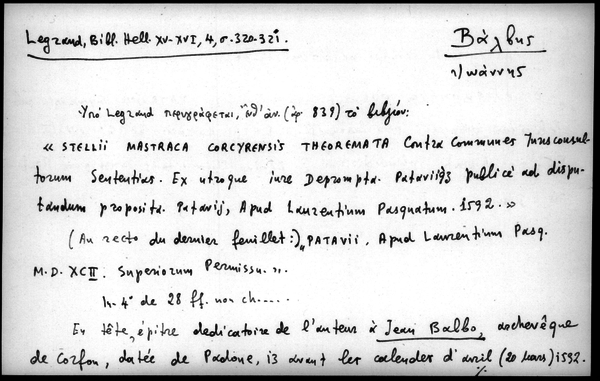 Legrand, Bibl. Hell. XV-XVI, 4, σ. 320-321.
Βάλβης
Ἰωάννης
Ὑπὸ Legrand περιγράφεται, ἔνθ' ἀν. (ἀρ. 839) τὸ βιβλίον:
« STELLII MASTRACA CORCYRENSIS THEOREMATA Contra Communes Jurisconsul-
torum Sententias. Ex utroque iure Deprompta. Patavii publicè ad dispu-
tandum proposita. Patavij, Apud Laurentium Pasquatum. 1592. »
(Au recto du dernier feuillet:) „PATAVII, Apud Laurentium Pasq.
M.D. XCII. Superiorum Permissu. ".
In-4° de 28 ff. non ch......
En tête, épitre dédicatoire de l'auteur à Jean Balbo, archevêque
de Corfou, datée de Padoue, 13 avant les calendes d'avril (20 mars) 1592.